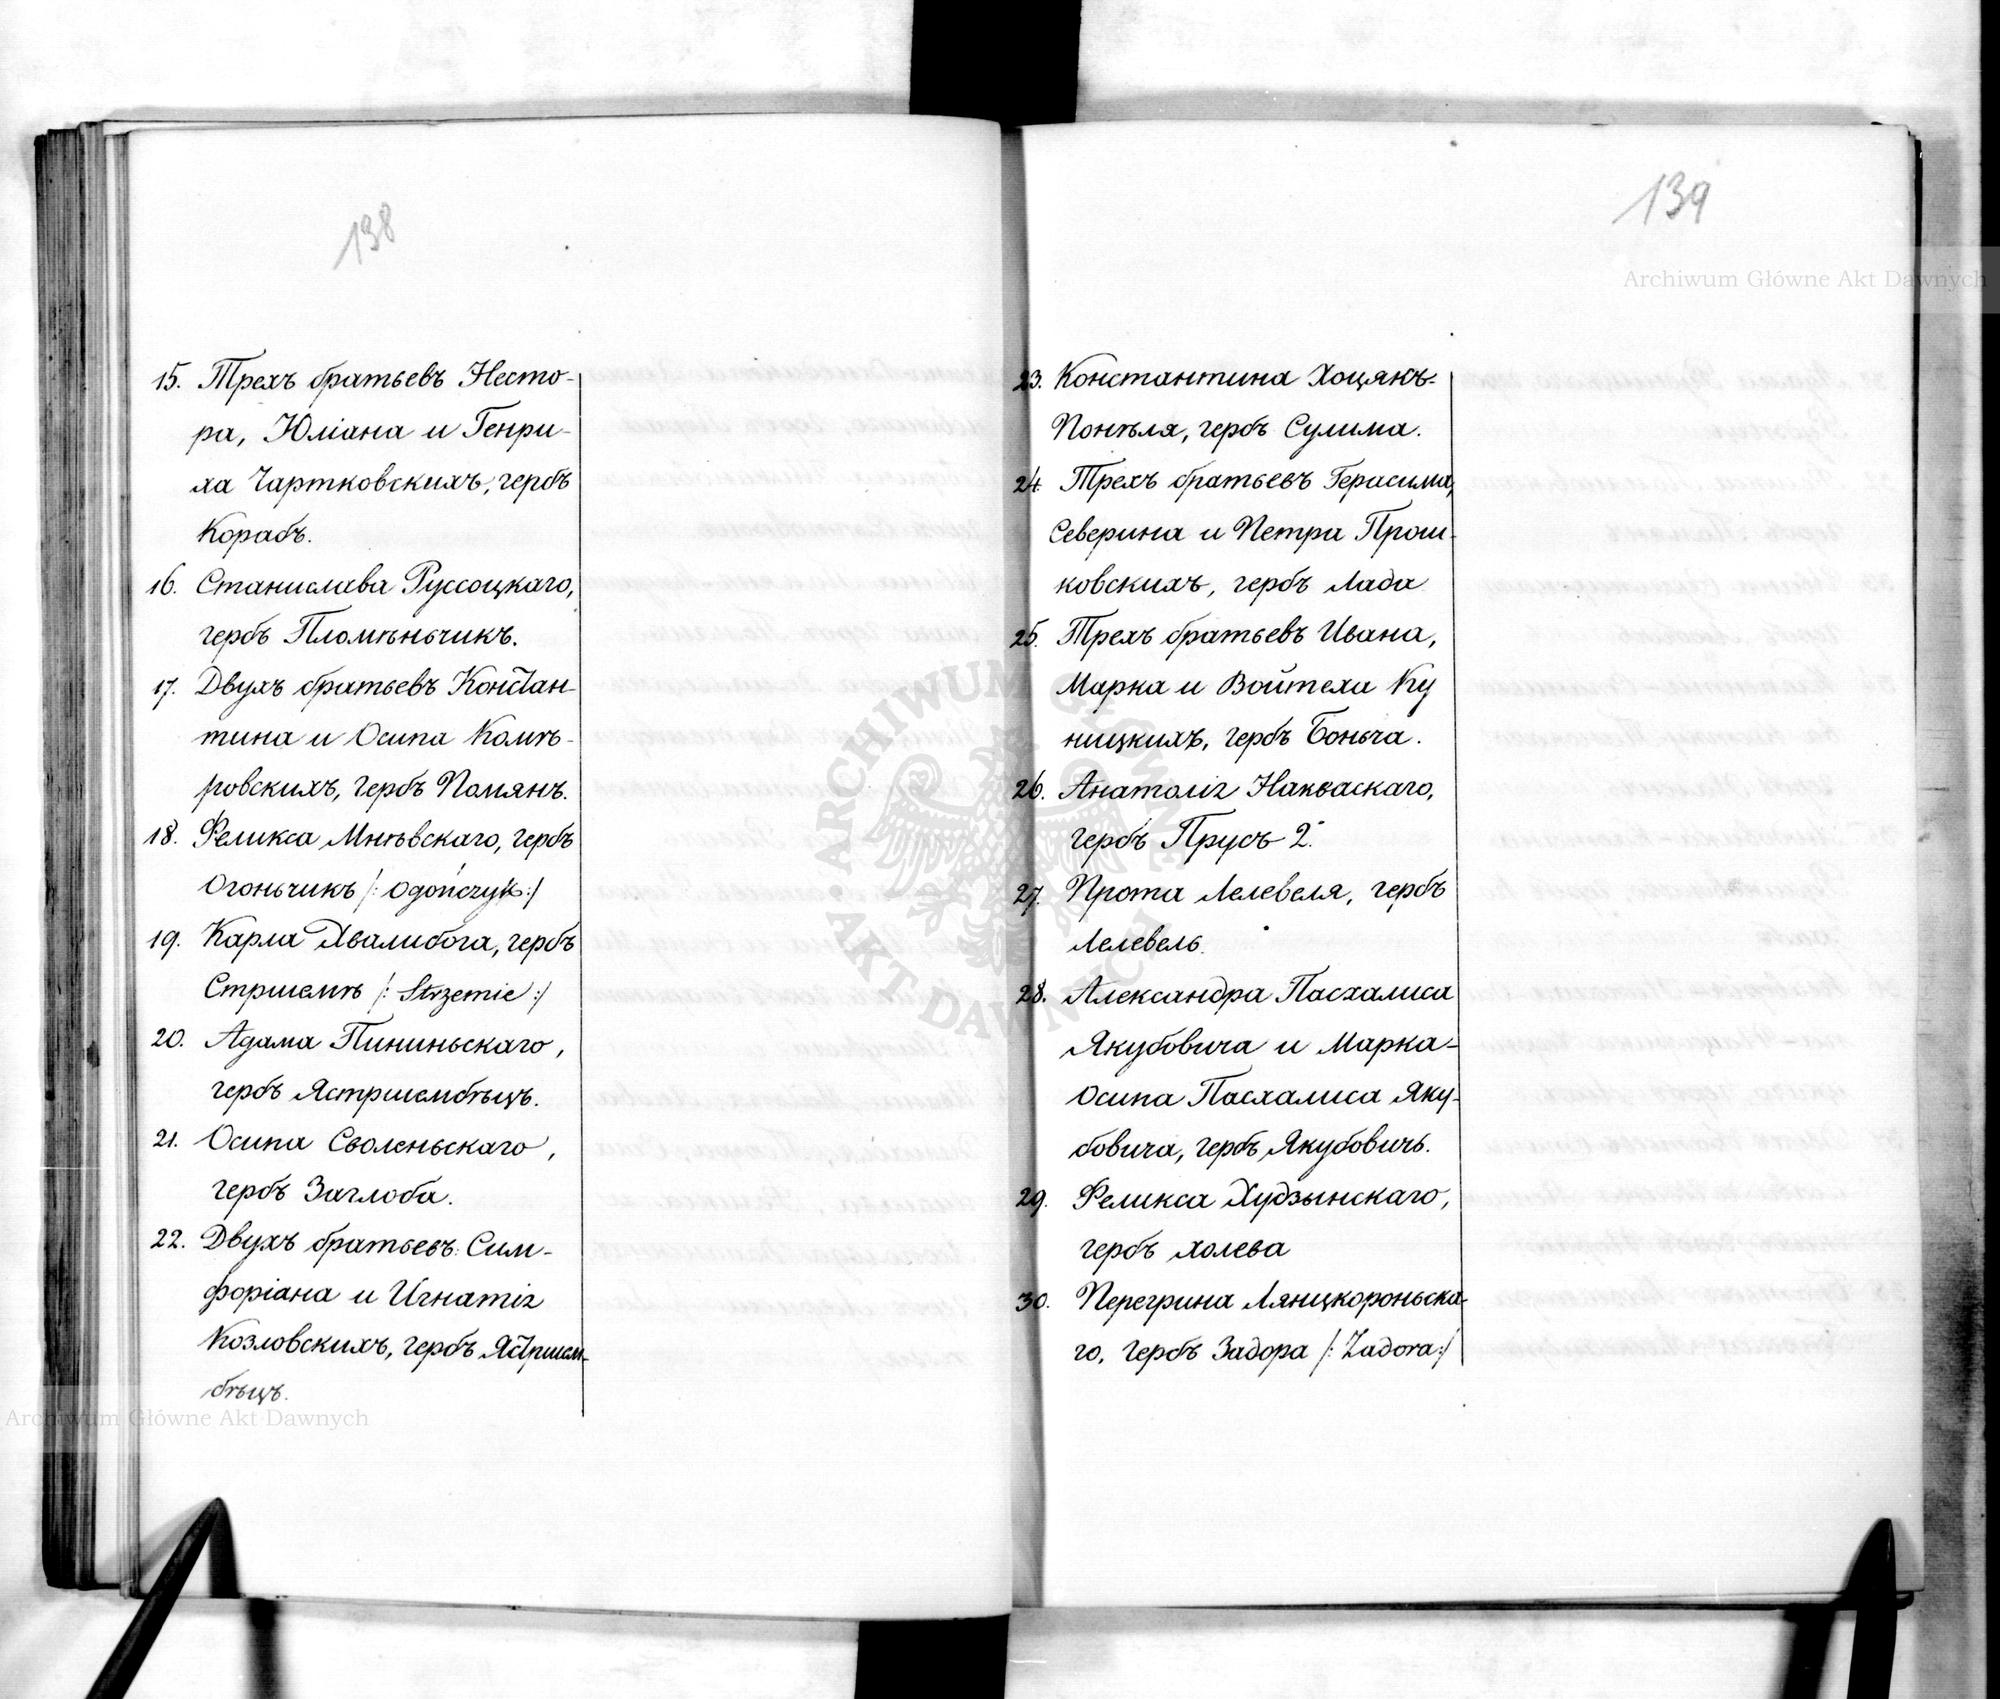 138
15. Трехъ братьевъ Несто-
ра, Юліана и Генри-
ха Чартковскихъ, гербъ
Корабъ.
16. Станислава Руссоцкаго,
гербъ Пломѣньчикъ.
17. Двухъ братьевъ Констан-
тина и Осипа Комѣ-
ровскихъ, гербъ Помянъ.
18. Феликса Мнѣвскаго, гербъ
Огоньчикъ /: Ogończyk :/
19. Карла Хвалибога, гербъ
Стршемѣ /: Strzemie :/
20. Адама Пининьскаго,
гербъ Ястршембѣцъ.
21. Осипа Своленьскаго,
гербъ Заглоба.
22. Двухъ братьевъ: Сим-
форіана и Игнатія
Козловскихъ, гербъ Ястршем-
бѣцъ.
Archiwum Główne Akt Dawnych
139
Archiwum Główne Akt Dawnych
23. Константина Хоцякъ-
Попѣля, гербъ Сулима.
24. Трехъ братьевъ Герасима,
Северина и Петра Прош-
ковскихъ, гербъ Лада
25. Трехъ братьевъ Ивана,
Марка и Войтеха Ку
ницкихъ, гербъ Боньча.
26. Анатолія Накваскаго,
гербъ Прусъ 2.
27. Прота Лелевеля, гербъ
Лелевель.
28. Александра Пасхалиса
Якубовича и Марка-
Осипа Пасхалиса Яку-
бовича, гербъ Якубовичъ.
29. Феликса Худзынскаго,
гербъ Холева
30. Перегрина Лянцкороньска-
го, гербъ Задора /: Zadora :/
ARCHIWUM GŁÓWNE
AKT DAWNYCH